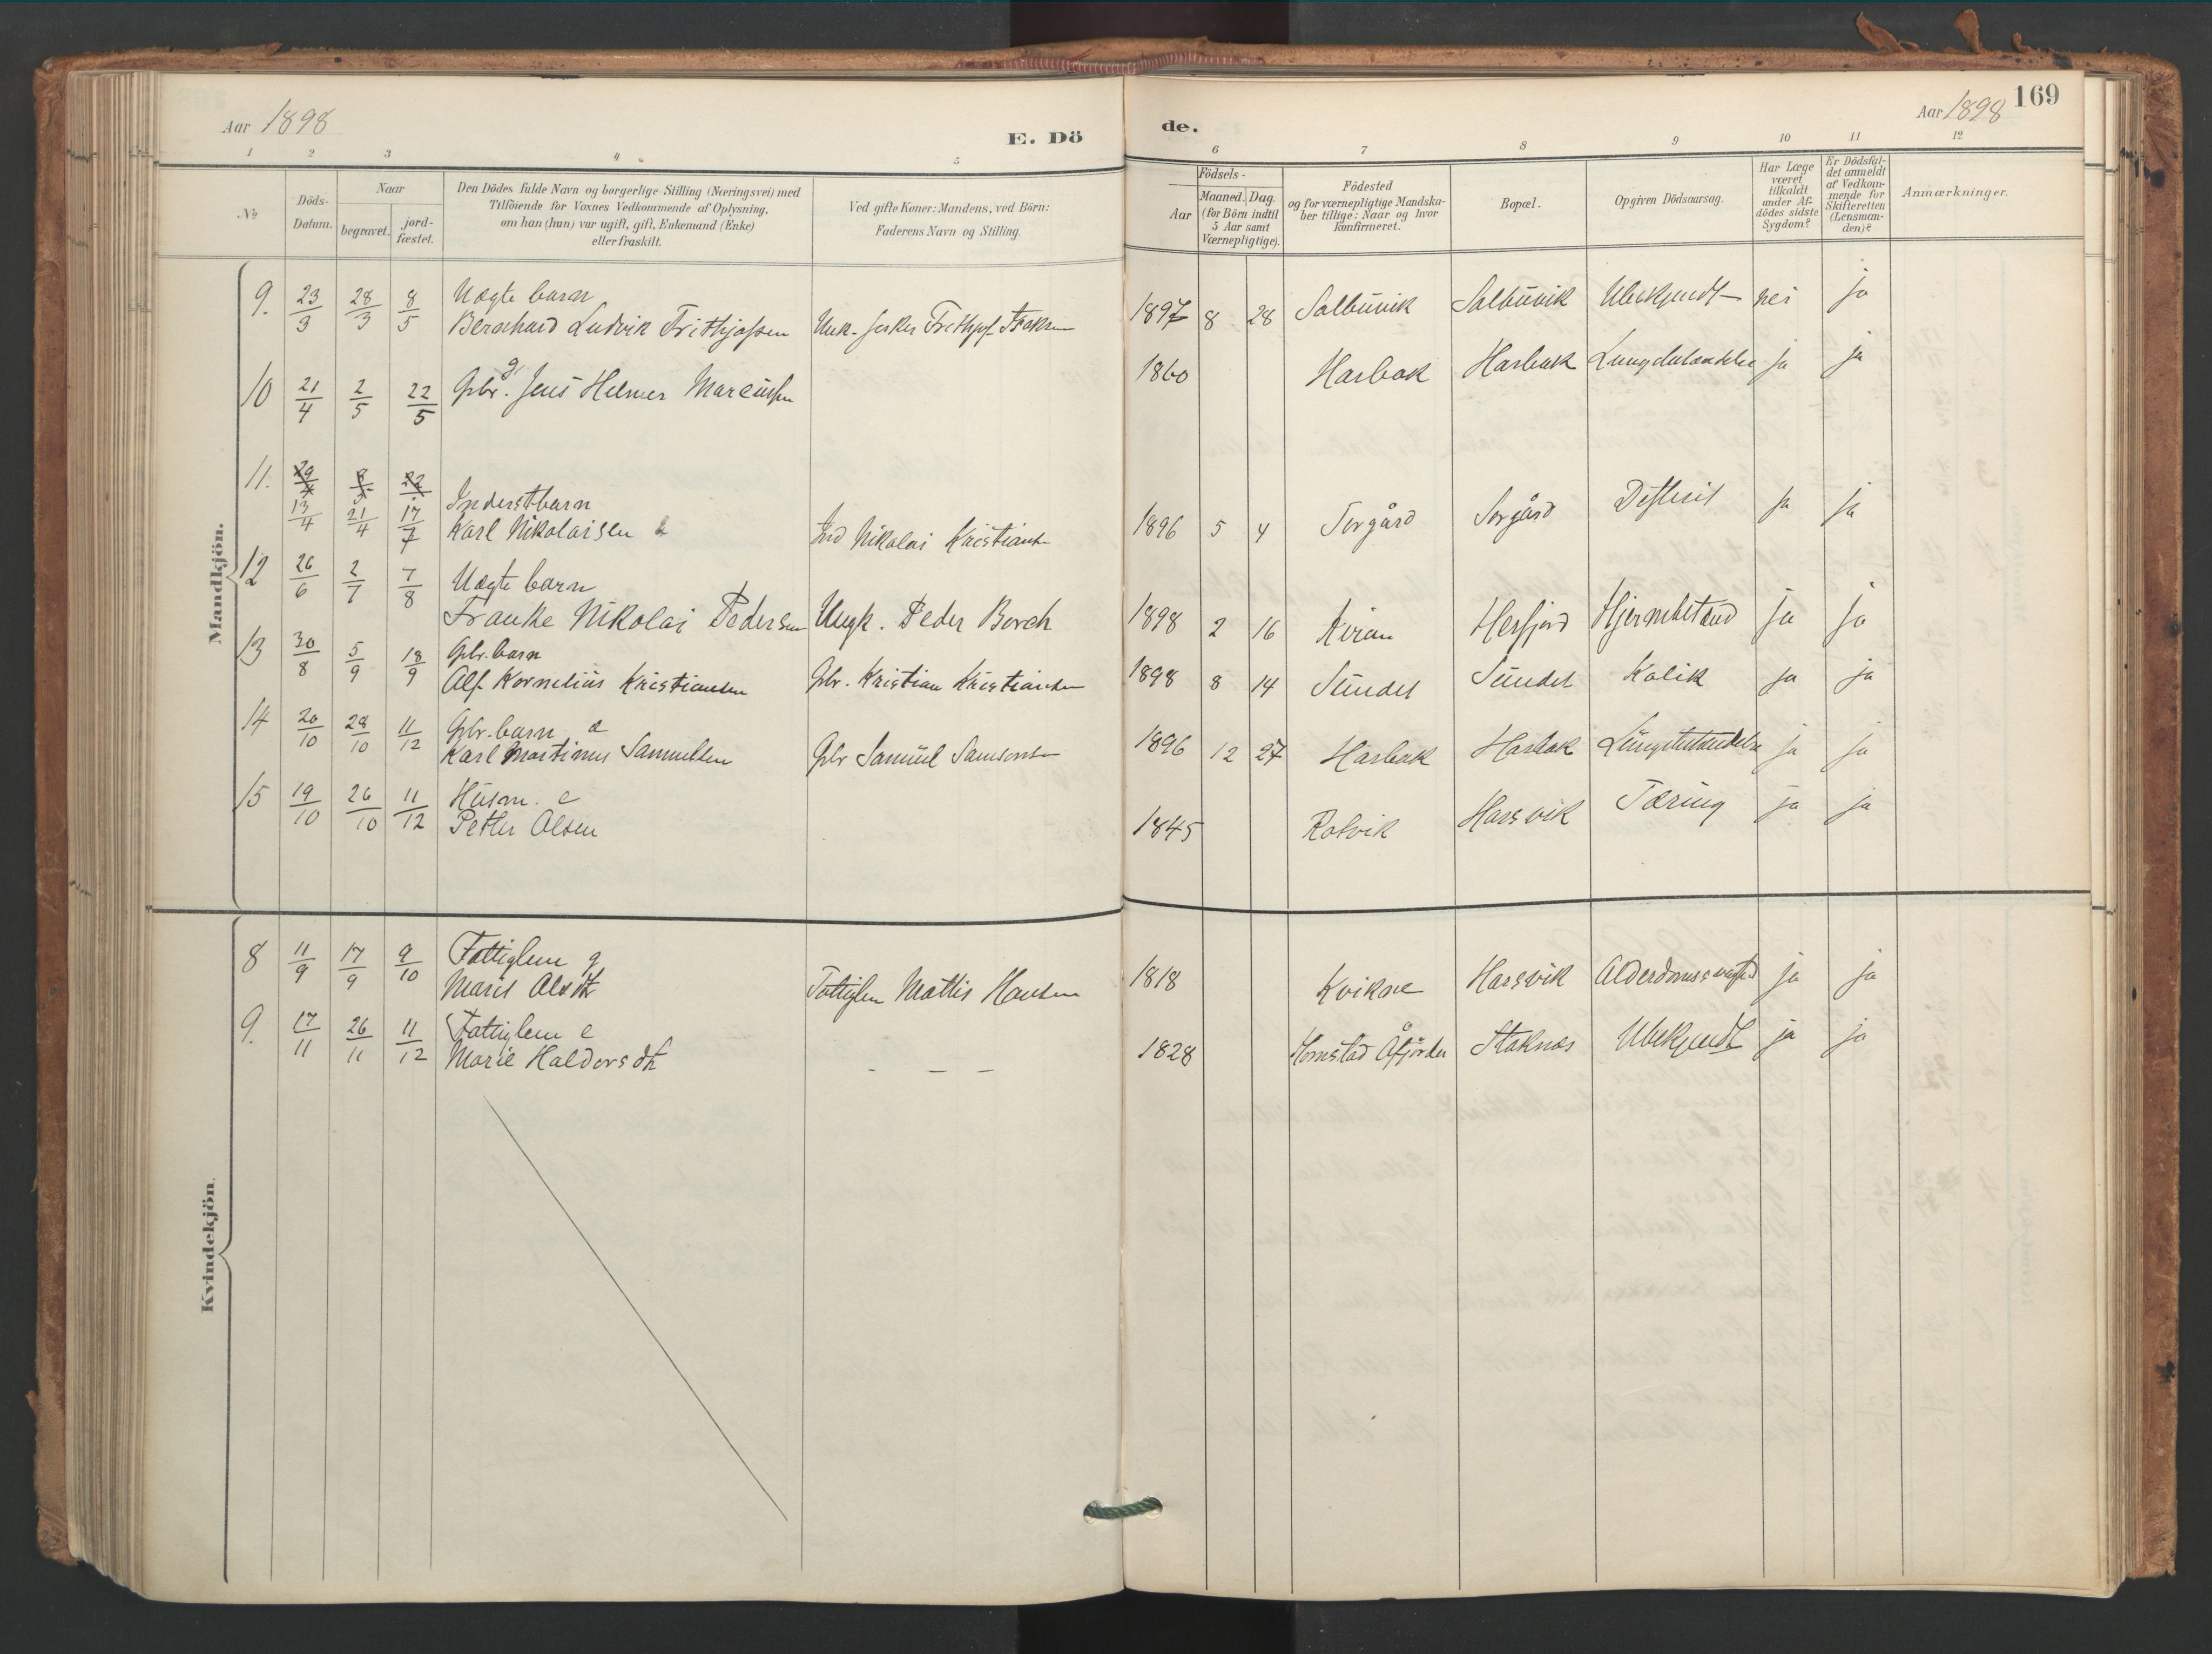 Aar 1898
E. Dö
de.
Aar 1898
169
1 2 3 4 5 6 7 8 9 10 11 12
No
Döds-
Datum.
Naar
begravet.
jord-
fæstet.
Den Dödes fulde Navn og borgerlige Stilling (Næringsvei) med
Tilföiende for Voxnes Vedkommende af Oplysning,
om han (hun) var ugift, gift, Enkemand (Enke)
eller fraskilt.
Ved gifte Koner: Mandens, ved Börn:
Faderens Navn og Stilling.
Födsels-
Aar
Maaned. Dag.
(for Börn indtil
5 Aar samt
Værnepligtige).
Födested
og for værnepligtige Mandska-
ber tillige: Naar og hvor
konfirmeret.
Bopæl.
Opgiven Dödsaarsag.
Har Læge
været
tilkaldt
under Af-
dödes sidste
Sygdom?
Er Dödsfal-
det anmeldt
af Vedkom-
mende for
Skifteretten
(Lensman-
den)?
Anmærkninger.
Mandkjön.
9. 23/3 28/3 8/5 Uægte barn
Bernhard Ludvik Frithjofsen 1897 8 28 Salbuvik Salbuvik Ubekjendt nei ja
10 21/4 2/5 22/5 Gbr. g. Jens Helmer Marcussen 1860 Harbak Harbak ja ja
11. 29/4 8/5 22/5
13/4 21/4 17/7 Inderstbarn
Karl Nikolaisen Ind Nikolai Kristiansen 1896 5 4 Sorgård ja ja
12 26/6 2/7 7/8 Uægte barn
Franke Nikolai Pedersen Ungk. Peder Borch 1898 2 16 Kiran Herfjord ja ja
13 30/8 5/9 18/9 Gbr. barn
Alf Kornelius Kristiansen Gbr. Kristian Kristiansen 1898 8 14 Sundet Sundet Kolik ja ja
14 20/10 28/10 11/12 Gbr. barn
Karl Martinus Samuelsen Gbr Samuel 1896 12 27 Harbak Harbak Lungebetændelse ja ja
15 19/10 26/10 11/12 Husm. e
Petter Olsen 1845 Ratvik Harsvik Tæring ja ja
Kvindekjön.
8 11/9 17/9 9/10 Fattiglem g
Marit Olsdtr Fattiglem Mattis Hansen 1818 Kvikne Harsvik ja ja
9. 17/11 26/11 11/12 Fattiglem e
Marie Haldorsdtr - - - 1828 Åfjorden Stoknes Ubekjendt ja ja